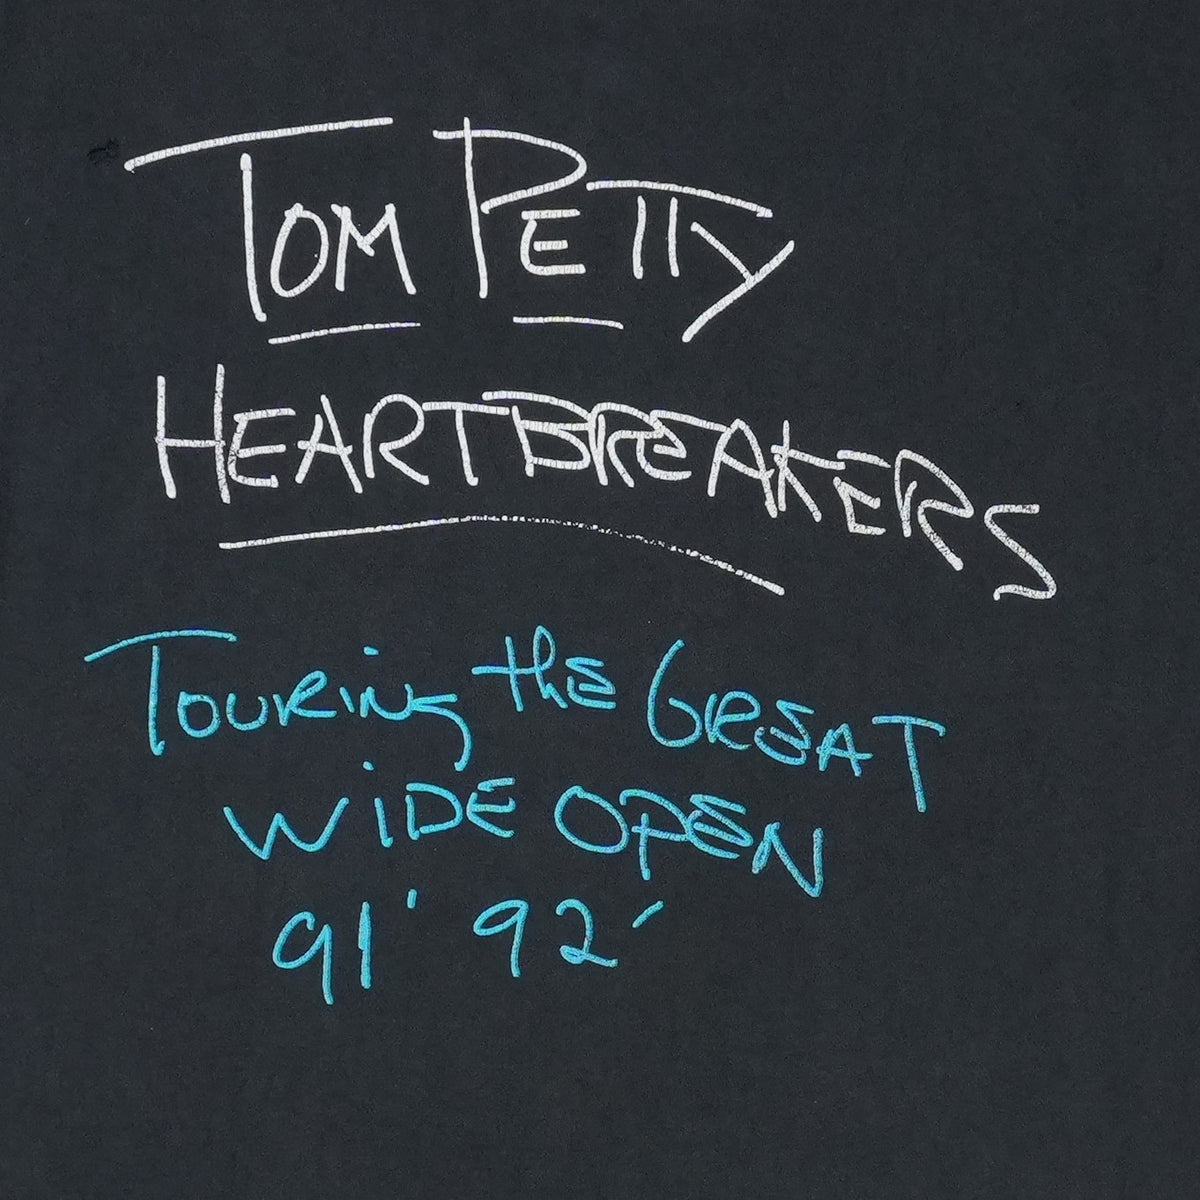 TOM PETTY
HEARTBREAKERS
TOURiNG thE GREAT
WiDE OPEN
91' 92'